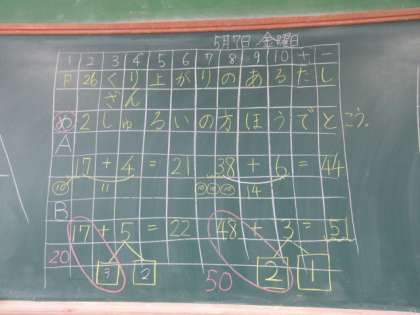 5月7日 金曜日
1 2 3 4 5 6 7 8 9 10 十 一
P 26 くり上がりのあるたし
ざん
め 2しゅるいの方ほうでとこう。
A
17+4=21 38+6=44
10 11 10 10 10 14
B
17+5=22 48+3=51
20 3 2 50 2 1